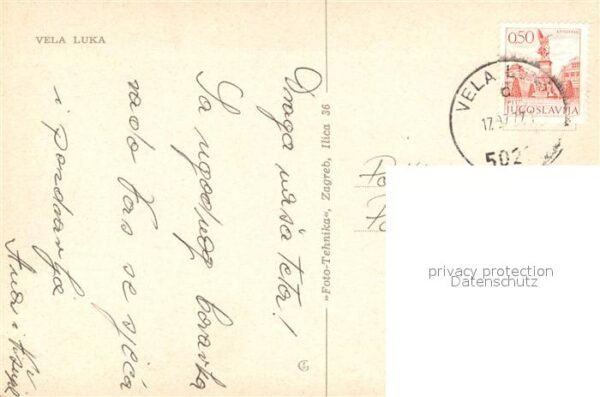 VELA LUKA
Draga naša teta!
Sa ugodnog boravka
rado Vas se sjeća
i pozdravlja
Ana i
»Foto-Tehnika«, Zagreb, Ilica 36
0,50
JUGOSLAVIJA
VELA
502
privacy protection
Datenschutz